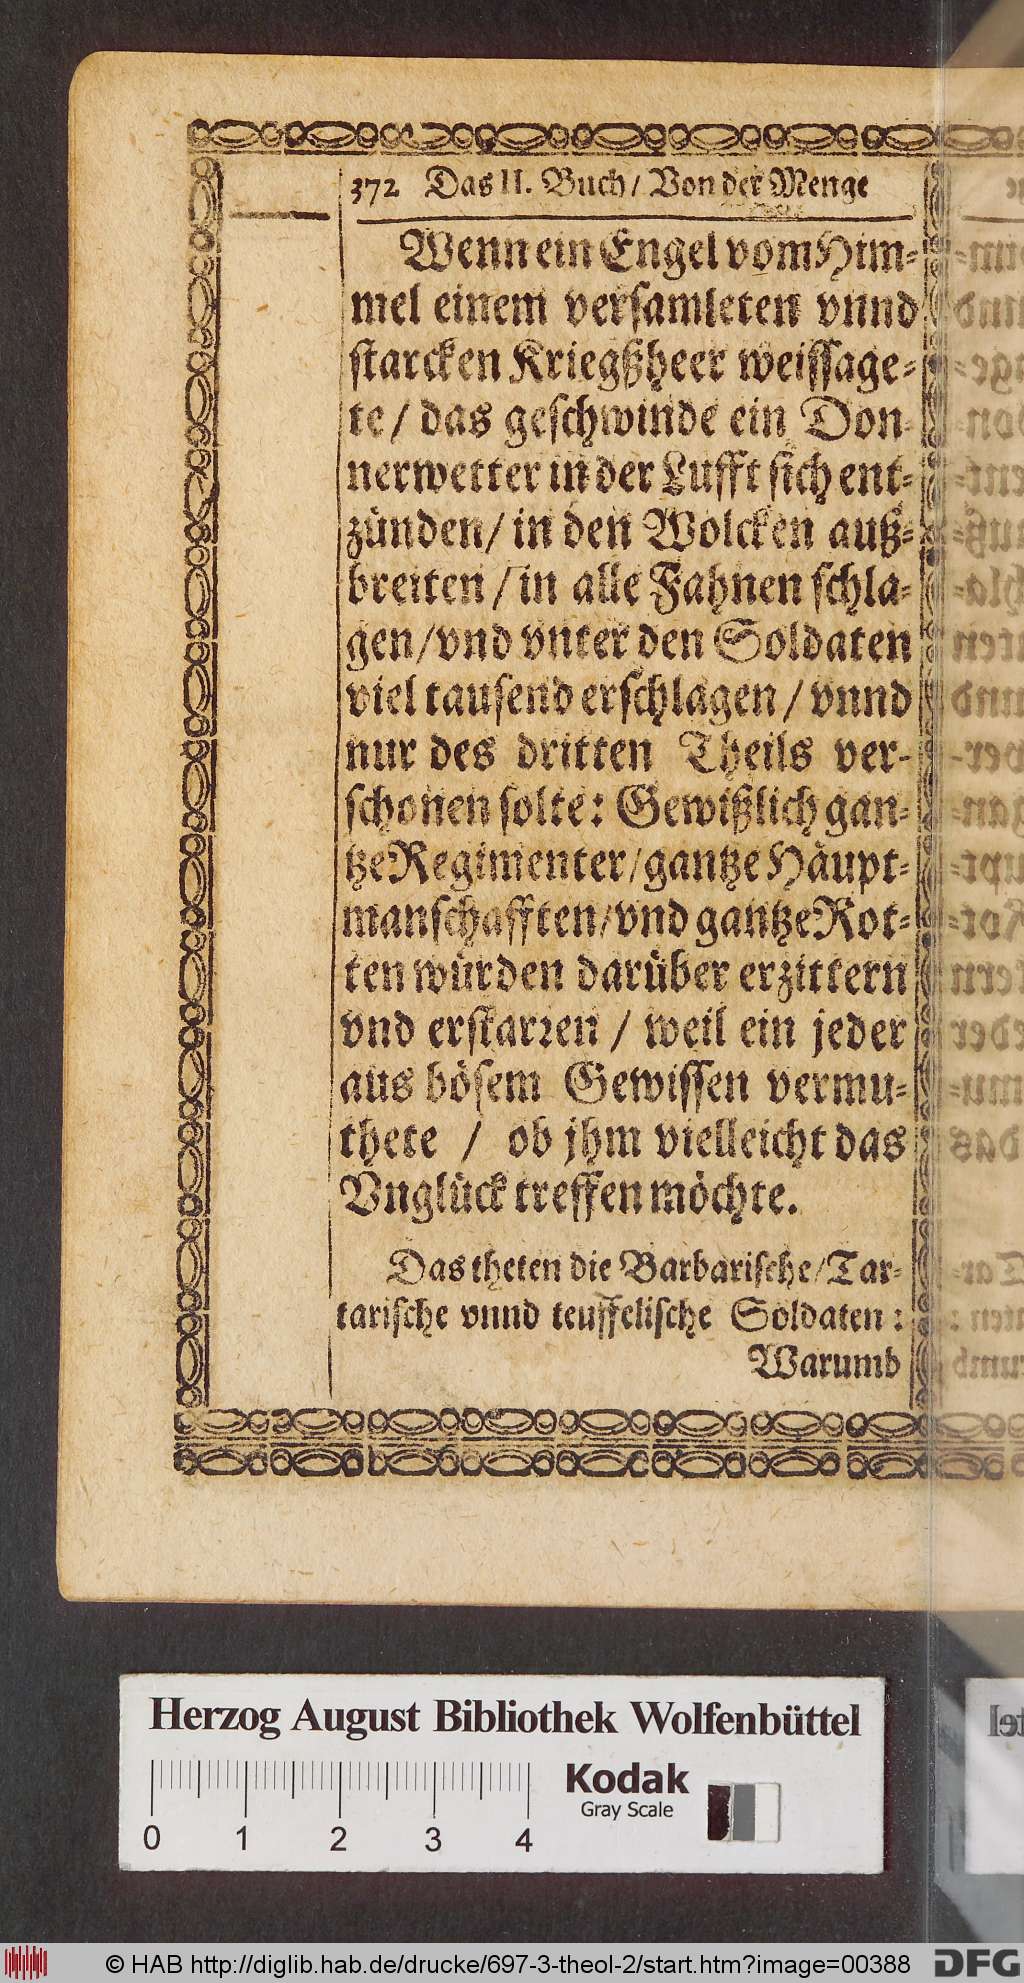 372 Das II. Buch / Von der Menge
Wenn ein Engel vom Him⸗
mel einem versamleten vnnd
starcken Kriegßheer weissage⸗
te / das geschwinde ein Don⸗
nerwetter in der Lufft sich ent⸗
zünden / in den Wolcken auß⸗
breiten / in alle Fahnen schla⸗
gen / vnd vnter den Soldaten
viel tausend erschlagen / vnnd
nur des dritten Theils ver⸗
schonen solte: Gewißlich gan⸗
tze Regimenter / gantze Häupt⸗
manschafften / vnd gantze Rot⸗
ten würden darüber erzittern
vnd erstarꝛen / weil ein jeder
aus bösem Gewissen vermu⸗
thete / ob jhm vielleicht das
Vnglück treffen möchte.
Das theten die Barbarische / Tar⸗
tarische vnnd teuffelische Soldaten:
Warumb
Herzog August Bibliothek Wolfenbüttel
Kodak
Gray Scale
0 1 2 3 4
© HAB http://diglib.hab.de/drucke/697-3-theol-2/start.htm?image=00388
DFG